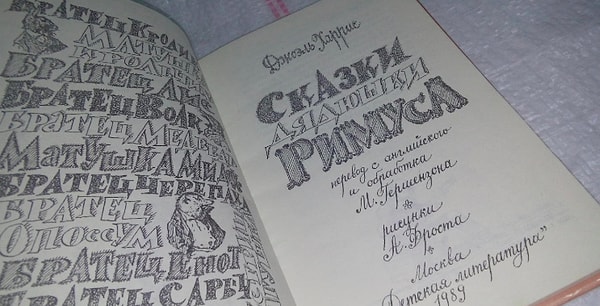 Братец Кролик
Матушка
Крольчиха
Братец Лис
Братец Волк
Братец Медведь
Матушка Мидоус
Братец Черепаха
Братец
Опоссум
Братец Енот
Братец Сарыч
Джоэль Харрис
Сказки
дядюшки
Римуса
перевод с английского
и обработка
М. Гершензона
рисунки
А. Фроста
Москва
„Детская литература"
1989